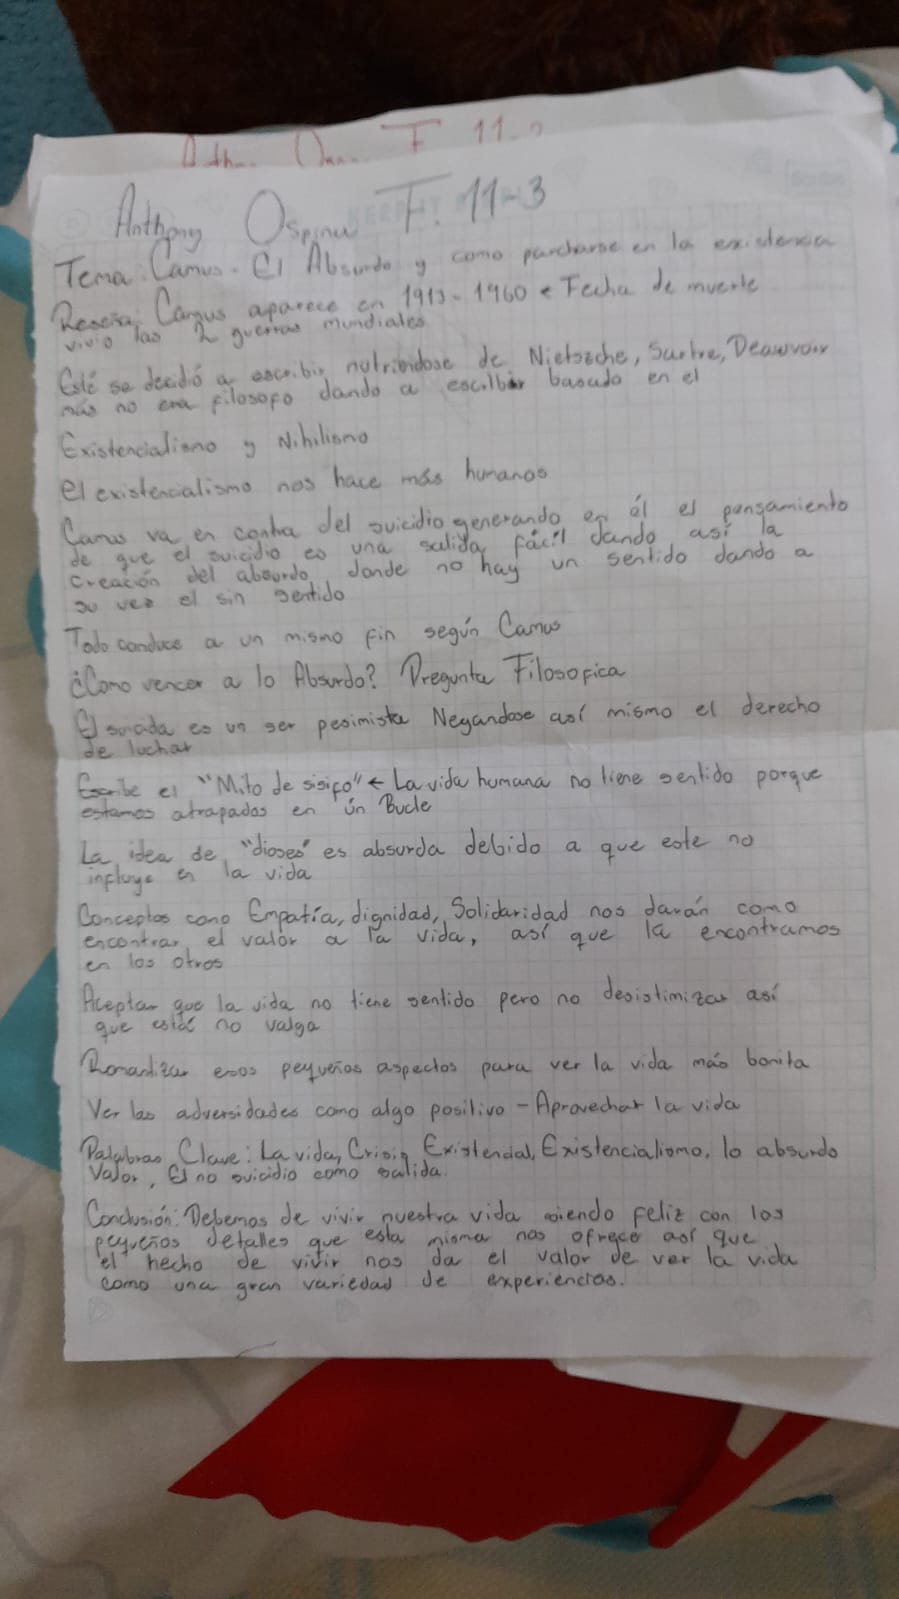 11-2
Anthony Ospina F. 11-3
Tema: Camus - El Absurdo y como parcharse en la existencia
Reseña: Camus aparece en 1913 - 1960 ← Fecha de muerte
vivio las 2 guerras mundiales
Esté se decidió a escribir nutriendose de Nietszche, Sartre, Beauvoir
más no era filosofo dando a escribir basado en el
Existencialismo y Nihilismo
el existencialismo nos hace más humanos
Camus va en contra del suicidio generando en él el pensamiento
de que el suicidio es una salida fácil dando así la
creación del absurdo, donde no hay un sentido dando a
su vez el sin sentido
Todo conduce a un mismo fin según Camus
¿Como vencer a lo Absurdo? Pregunta Filosofica
El suicida es un ser pesimista Negandose así mismo el derecho
de luchar
Escribe el "Mito de sisifo" ← La vida humana no tiene sentido porque
estamos atrapados en ún Bucle
La idea de "dioses" es absurda debido a que este no
influye en la vida
Conceptos como Empatía, dignidad, Solidaridad nos darán como
encontrar el valor a la vida, así que la encontramos
en los otros
Aceptar que la vida no tiene sentido pero no desistimizar así
que está no valga
Romantizar esos pequeños aspectos para ver la vida más bonita
Ver las adversidades como algo positivo - Aprovechar la vida
Palabras Clave: La vida, Crisis Existencial, Existencialismo, lo absurdo
Valor, El no suicidio como salida.
Conclusión: Debemos de vivir nuestra vida siendo feliz con los
pequeños detalles que esta misma nos ofrece así que
el hecho de vivir nos da el valor de ver la vida
como una gran variedad de experiencias.